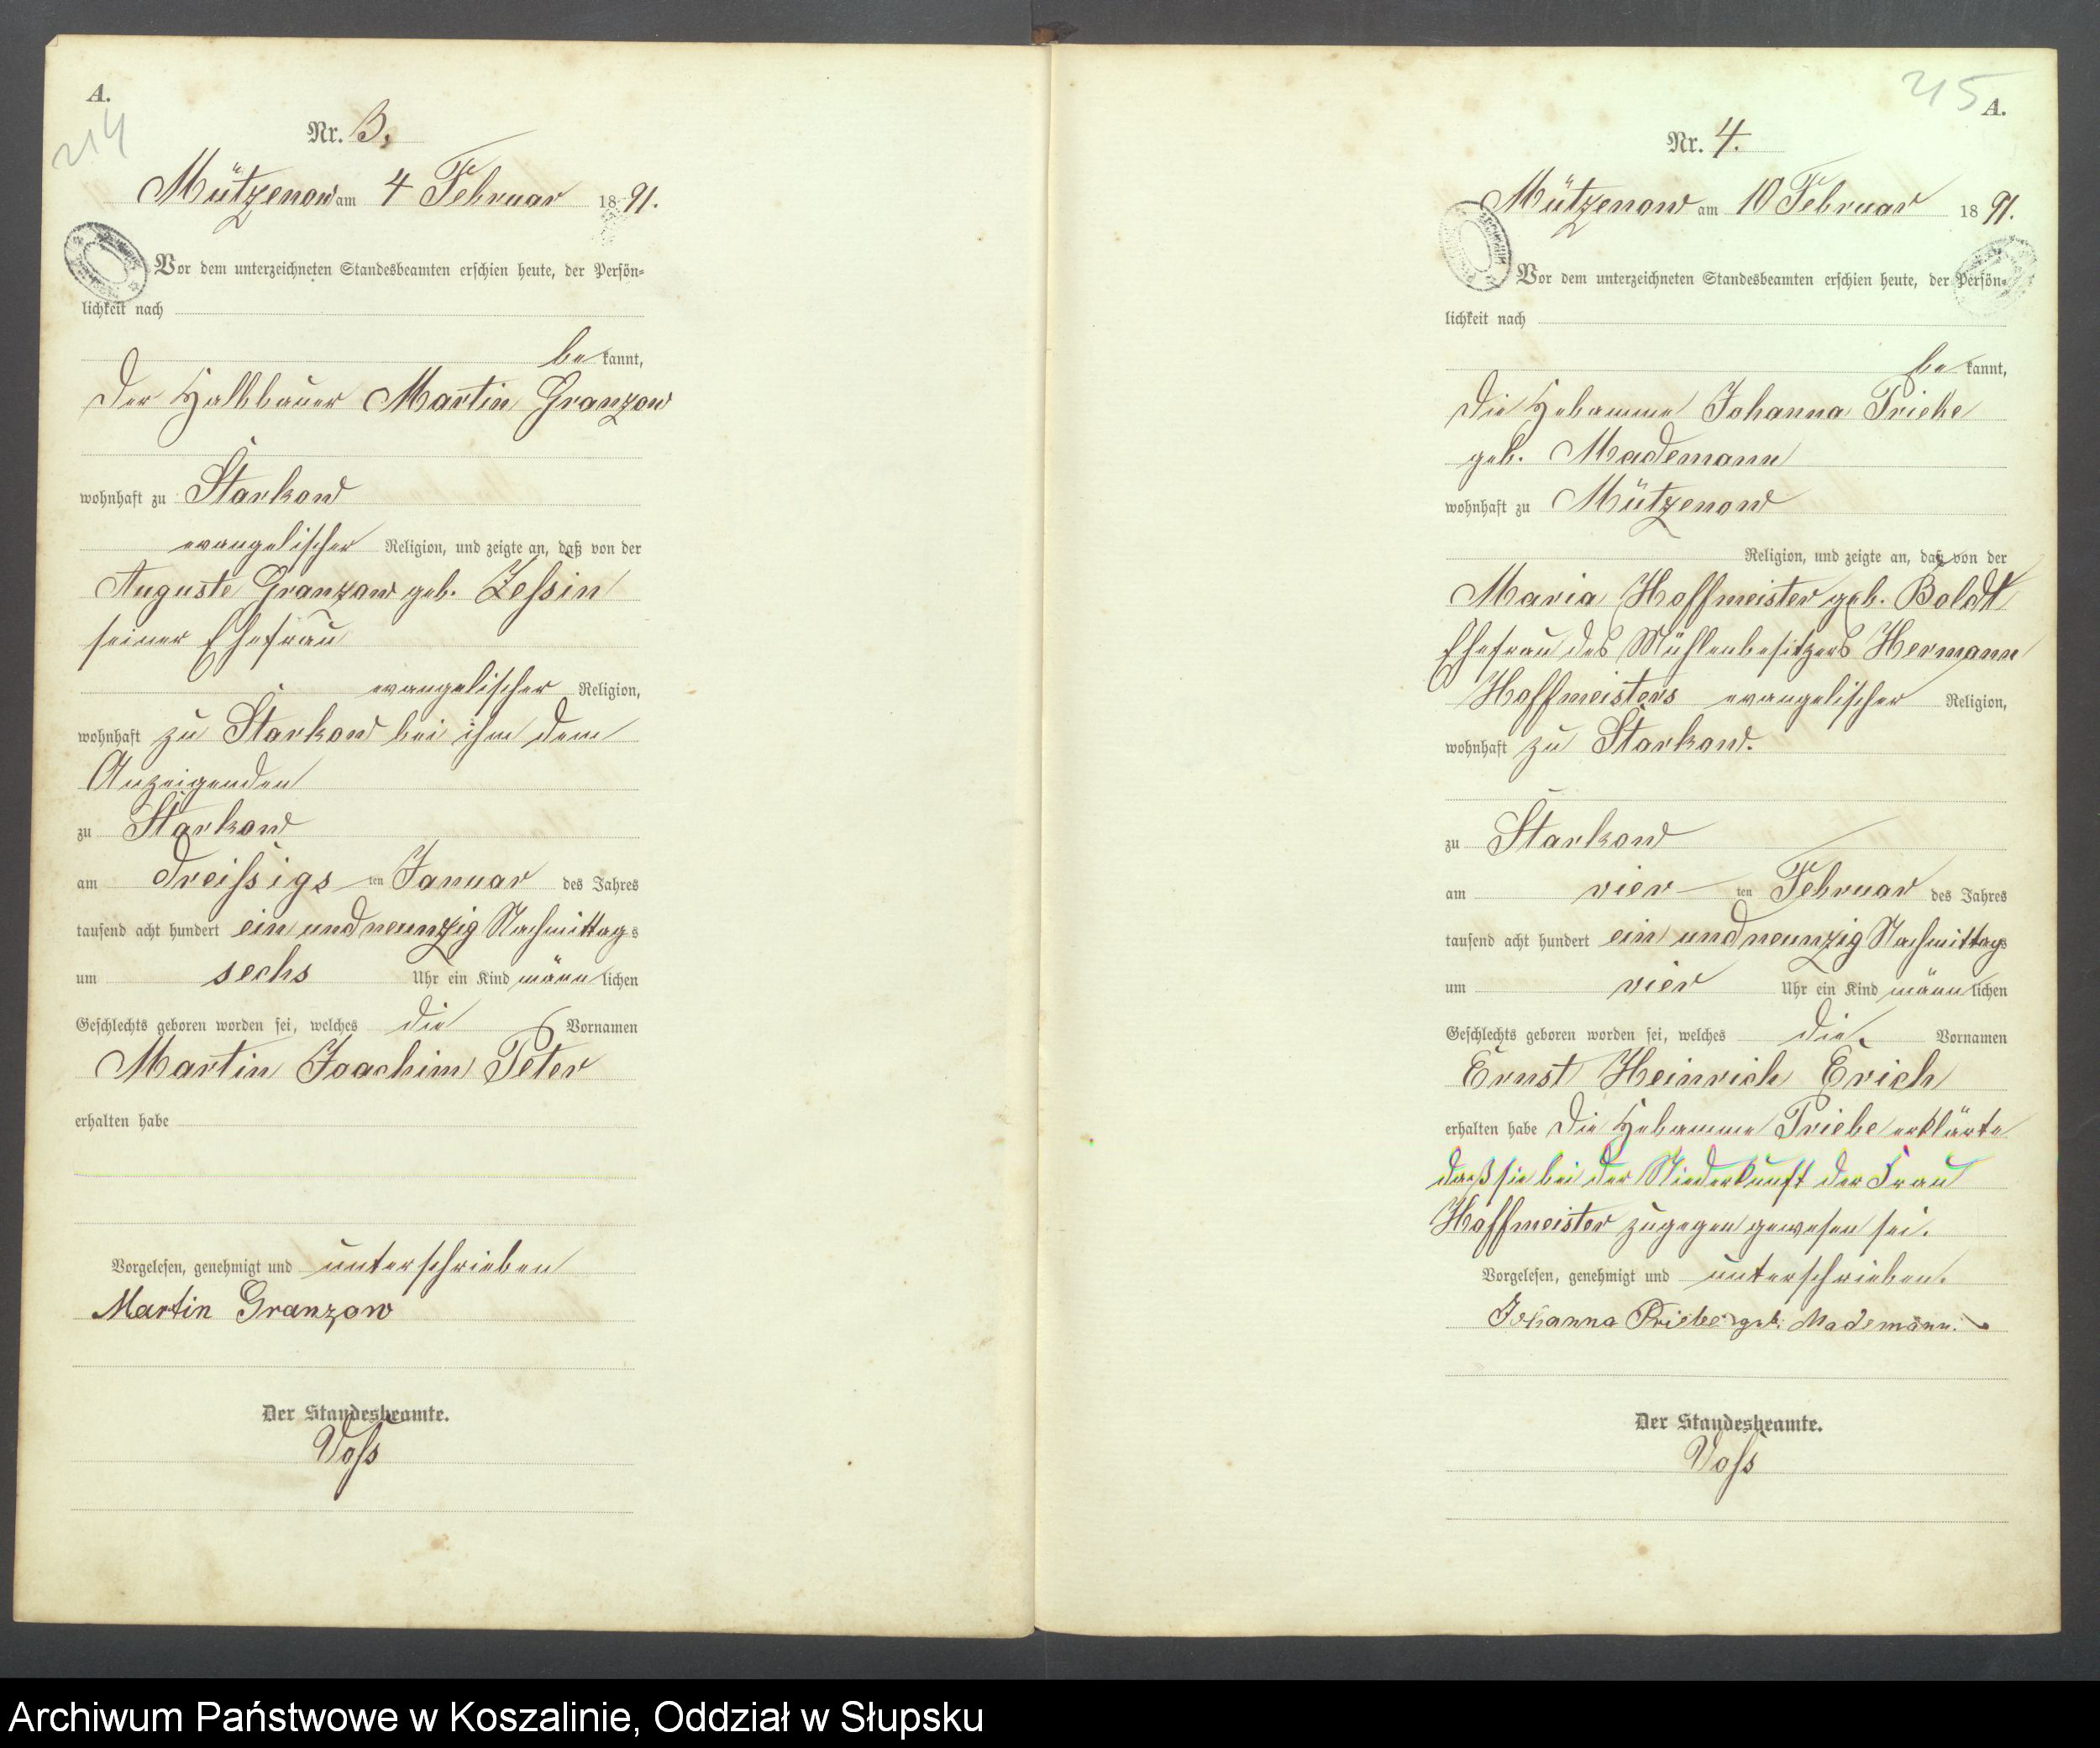 A.
214
Nr. 3.
Mützenow am 4 Februar 1891.
Vor dem unterzeichneten Standesbeamten erschien heute, der Persön-
lichkeit nach
bekannt,
Der Halbbauer Martin Granzow
wohnhaft zu Starkow
evangelischer Religion, und zeigte an, daß von der
Auguste Granzow geb. Zessin
seiner Ehefrau
evangelischer Religion,
wohnhaft zu Starkow bei ihm dem
Anzeigenden
zu Starkow
am dreissigs ten Januar des Jahres
tausend acht hundert ein und neunzig Nachmittags
um sechs Uhr ein Kind männlichen
Geschlechts geboren worden sei, welches die Vornamen
Martin Joachim Peter
erhalten habe
Vorgelesen, genehmigt und unterschrieben
Martin Granzow
Der Standesbeamte.
Voss
215
A.
Nr. 4.
Mützenow am 10 Februar 1891.
Vor dem unterzeichneten Standesbeamten erschien heute, der Persön-
lichkeit nach
bekannt,
Die Hebamme Johanna Priebe
geb. Mademann
wohnhaft zu Mützenow
Religion, und zeigte an, daß von der
Maria Hoffmeister geb. Boldt
Ehefrau des Mühlenbesitzers Hermann
Hoffmeisters evangelischer Religion,
wohnhaft zu Starkow.
zu Starkow
am vier ten Februar des Jahres
tausend acht hundert ein und neunzig Nachmittags
um vier Uhr ein Kind männlichen
Geschlechts geboren worden sei, welches die Vornamen
Ernst Heinrich Erich
erhalten habe Die Hebamme Priebe erklärte
daß sie bei der Niederkunft der Frau
Hoffmeister zugegen gewesen sei.
Vorgelesen, genehmigt und unterschrieben.
Johanna Priebe geb. Mademann.
Der Standesbeamte.
Voss
Archiwum Państwowe w Koszalinie, Oddział w Słupsku